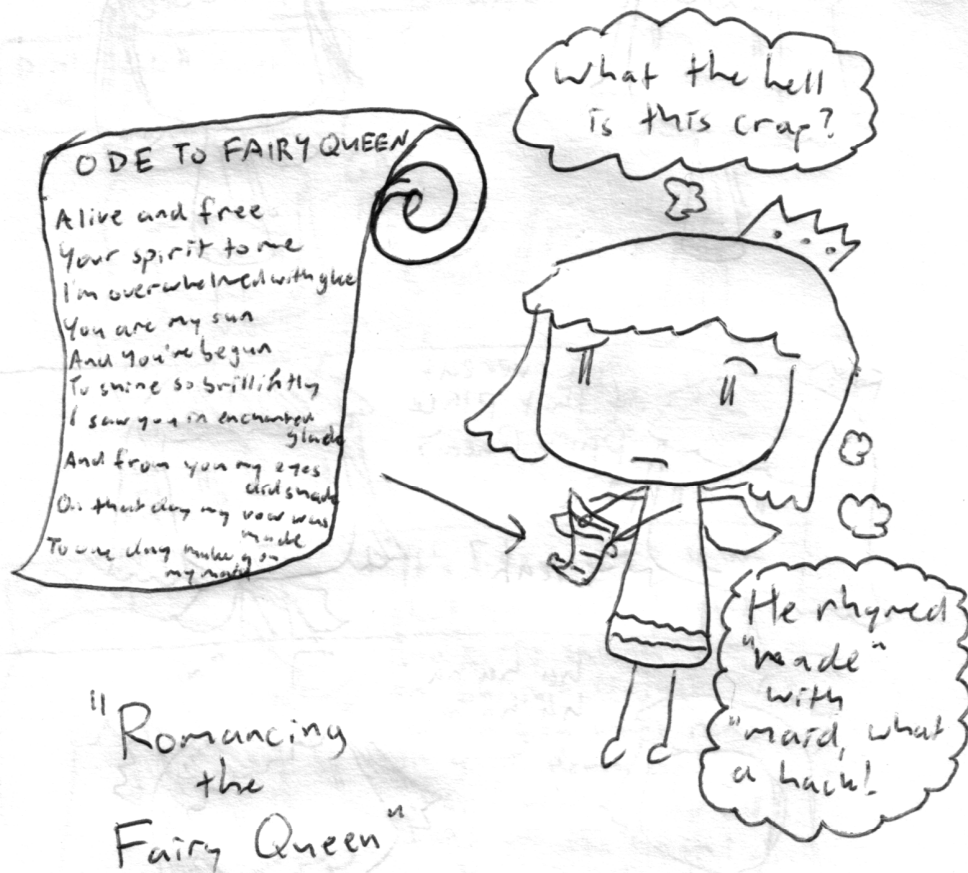 What the hell
is this crap?
ODE TO FAIRY QUEEN
Alive and free
Your spirit to me
I'm overwhelmed with glee
You are my sun
And you've begun
To shine so brillintly
I saw you in enchanted
glade
And from you my eyes
did shade
On that day my vow was
made
To one day make you
my maid
He rhymed
"made"
with
"maid, what
a hack!
"Romancing
the
Fairy Queen"